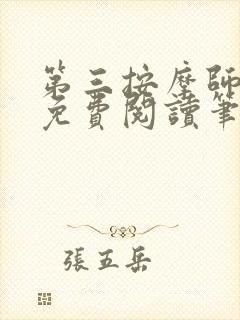 第三按摩師
免費閱讀筆
張五岳